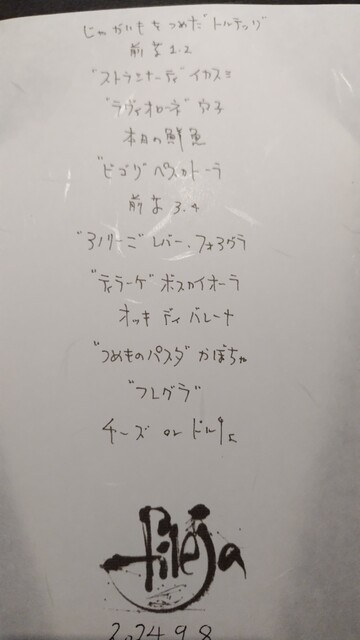 じゃがいもをつめた"トルテッリ"
前菜1.2
"ストラシナーティ"イカスミ
"ラヴィオローネ"穴子
本日の鮮魚
"ビゴリ"ペスカトーラ
前菜3.4
レバー.フォアグラ
ボスカイオーラ
オッキ ディ バレーナ
"つめものパスタ"かぼちゃ
"フレグラ"
チーズ or ドルチェ
fileja
2024.9.8